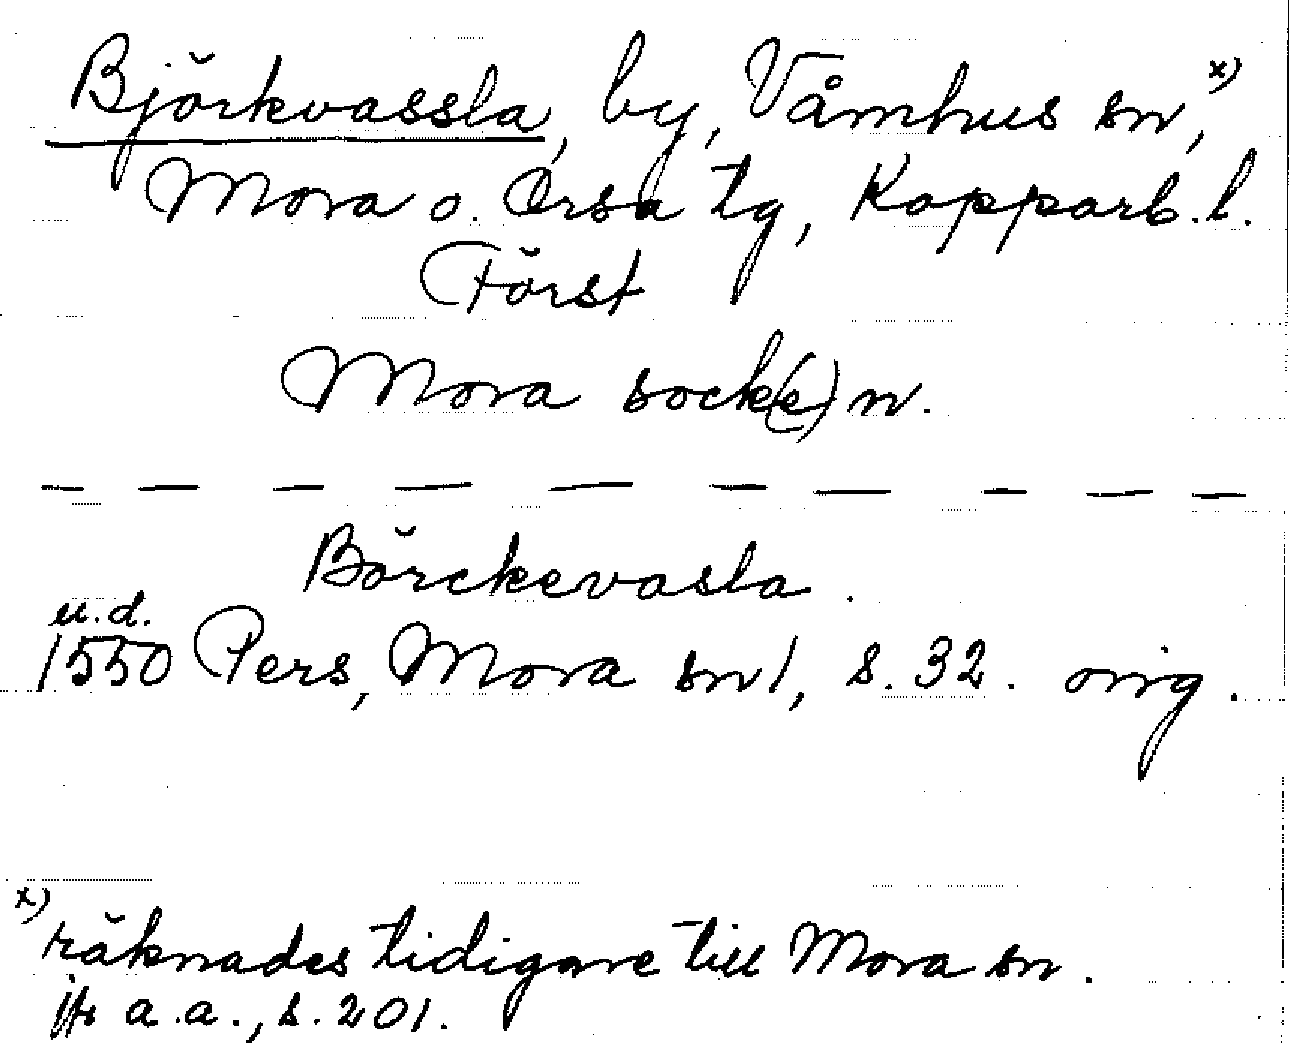 Björkvassla, by, Våmhus sn, x)
Mora o. Orsa tg, Kopparb. l.
Först
Mora sock(e)n.
Börckevasla.
u.d.
1550 Pers, Mora sn 1, s. 32. orig.
x) räknades tidigare till Mora sn.
jfr a.a., s. 201.